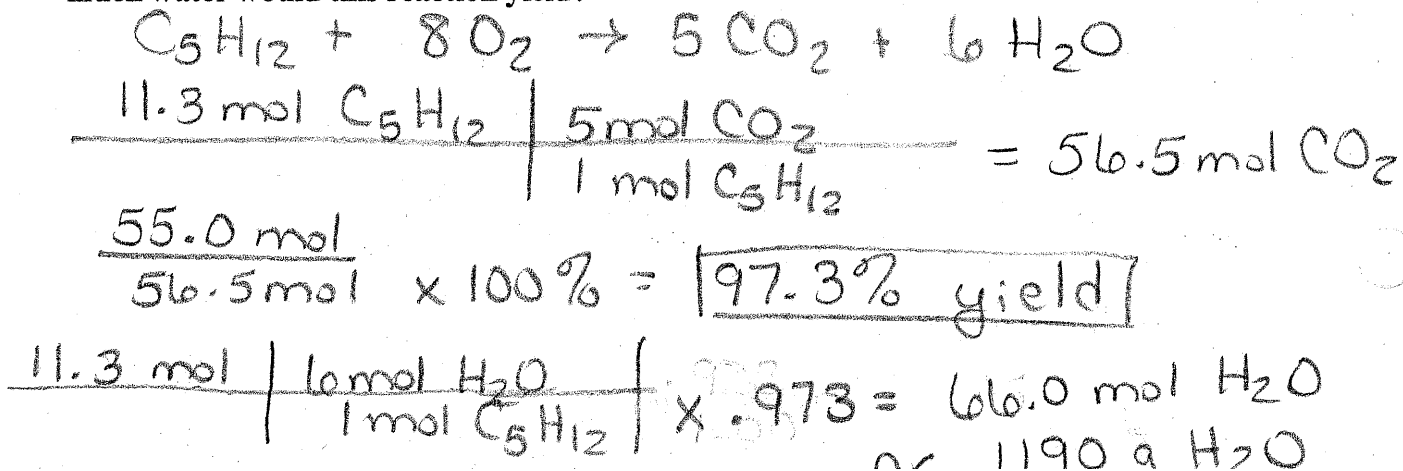 much water would this reaction yield?
C5H12 + 8O2 → 5 CO2 + 6 H2O
11.3 mol C5H12 | 5 mol CO2 = 56.5 mol CO2
1 mol C5H12
55.0 mol
56.5 mol x 100% = 97.3% yield
11.3 mol | 6 mol H2O
1 mol C5H12 | x .973 = 66.0 mol H2O
or 1190 g H2O